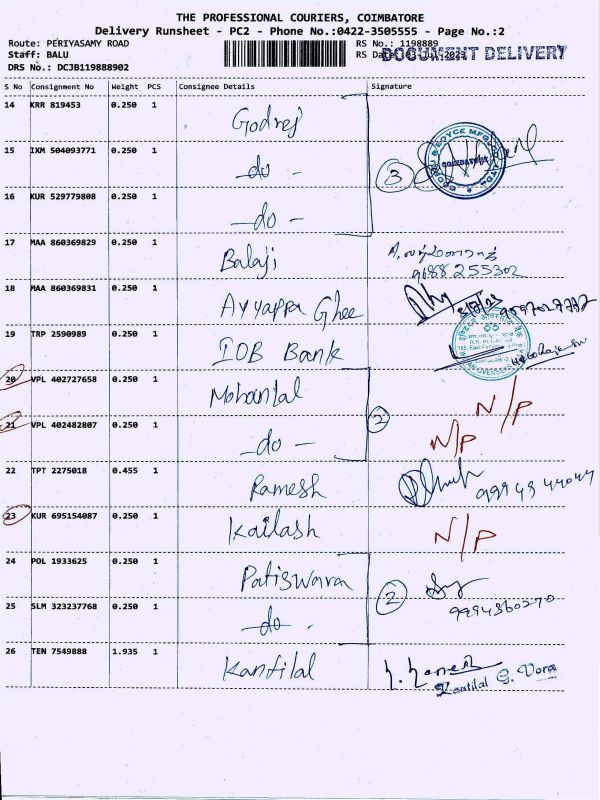 THE PROFESSIONAL COURIERS, COIMBATORE
Delivery Runsheet - PC2 - Phone No.:0422-3505555 - Page No.:2
Route: PERIYASAMY ROAD
RS No.: 1198889
Staff: BALU
RS Date: 03-Jul-2023
DOCUMENT DELIVERY
DRS No.: DCJB119888902
S No Consignment No Weight PCS Consignee Details Signature
14 KRR 819453 0.250 1 Godrej
15 IXM 504093771 0.250 1 -do- 3
16 KUR 529779808 0.250 1 -do-
17 MAA 860369829 0.250 1 Balaji
9688255302
18 MAA 860369831 0.250 1 Ayyappa Ghee
19 TRP 2590989 0.250 1 IOB Bank
20 VPL 402727658 0.250 1 Mohanlal N/P
21 VPL 402482807 0.250 1 -do- 2 N/P
22 TPT 2275018 0.455 1 Ramesh
23 KUR 695154087 0.250 1 Kailash N/P
24 POL 1933625 0.250 1 Patiswara
25 SLM 323237768 0.250 1 -do- 2 9994360270
26 TEN 7549888 1.935 1 Kantilal
Kantilal G. Vora